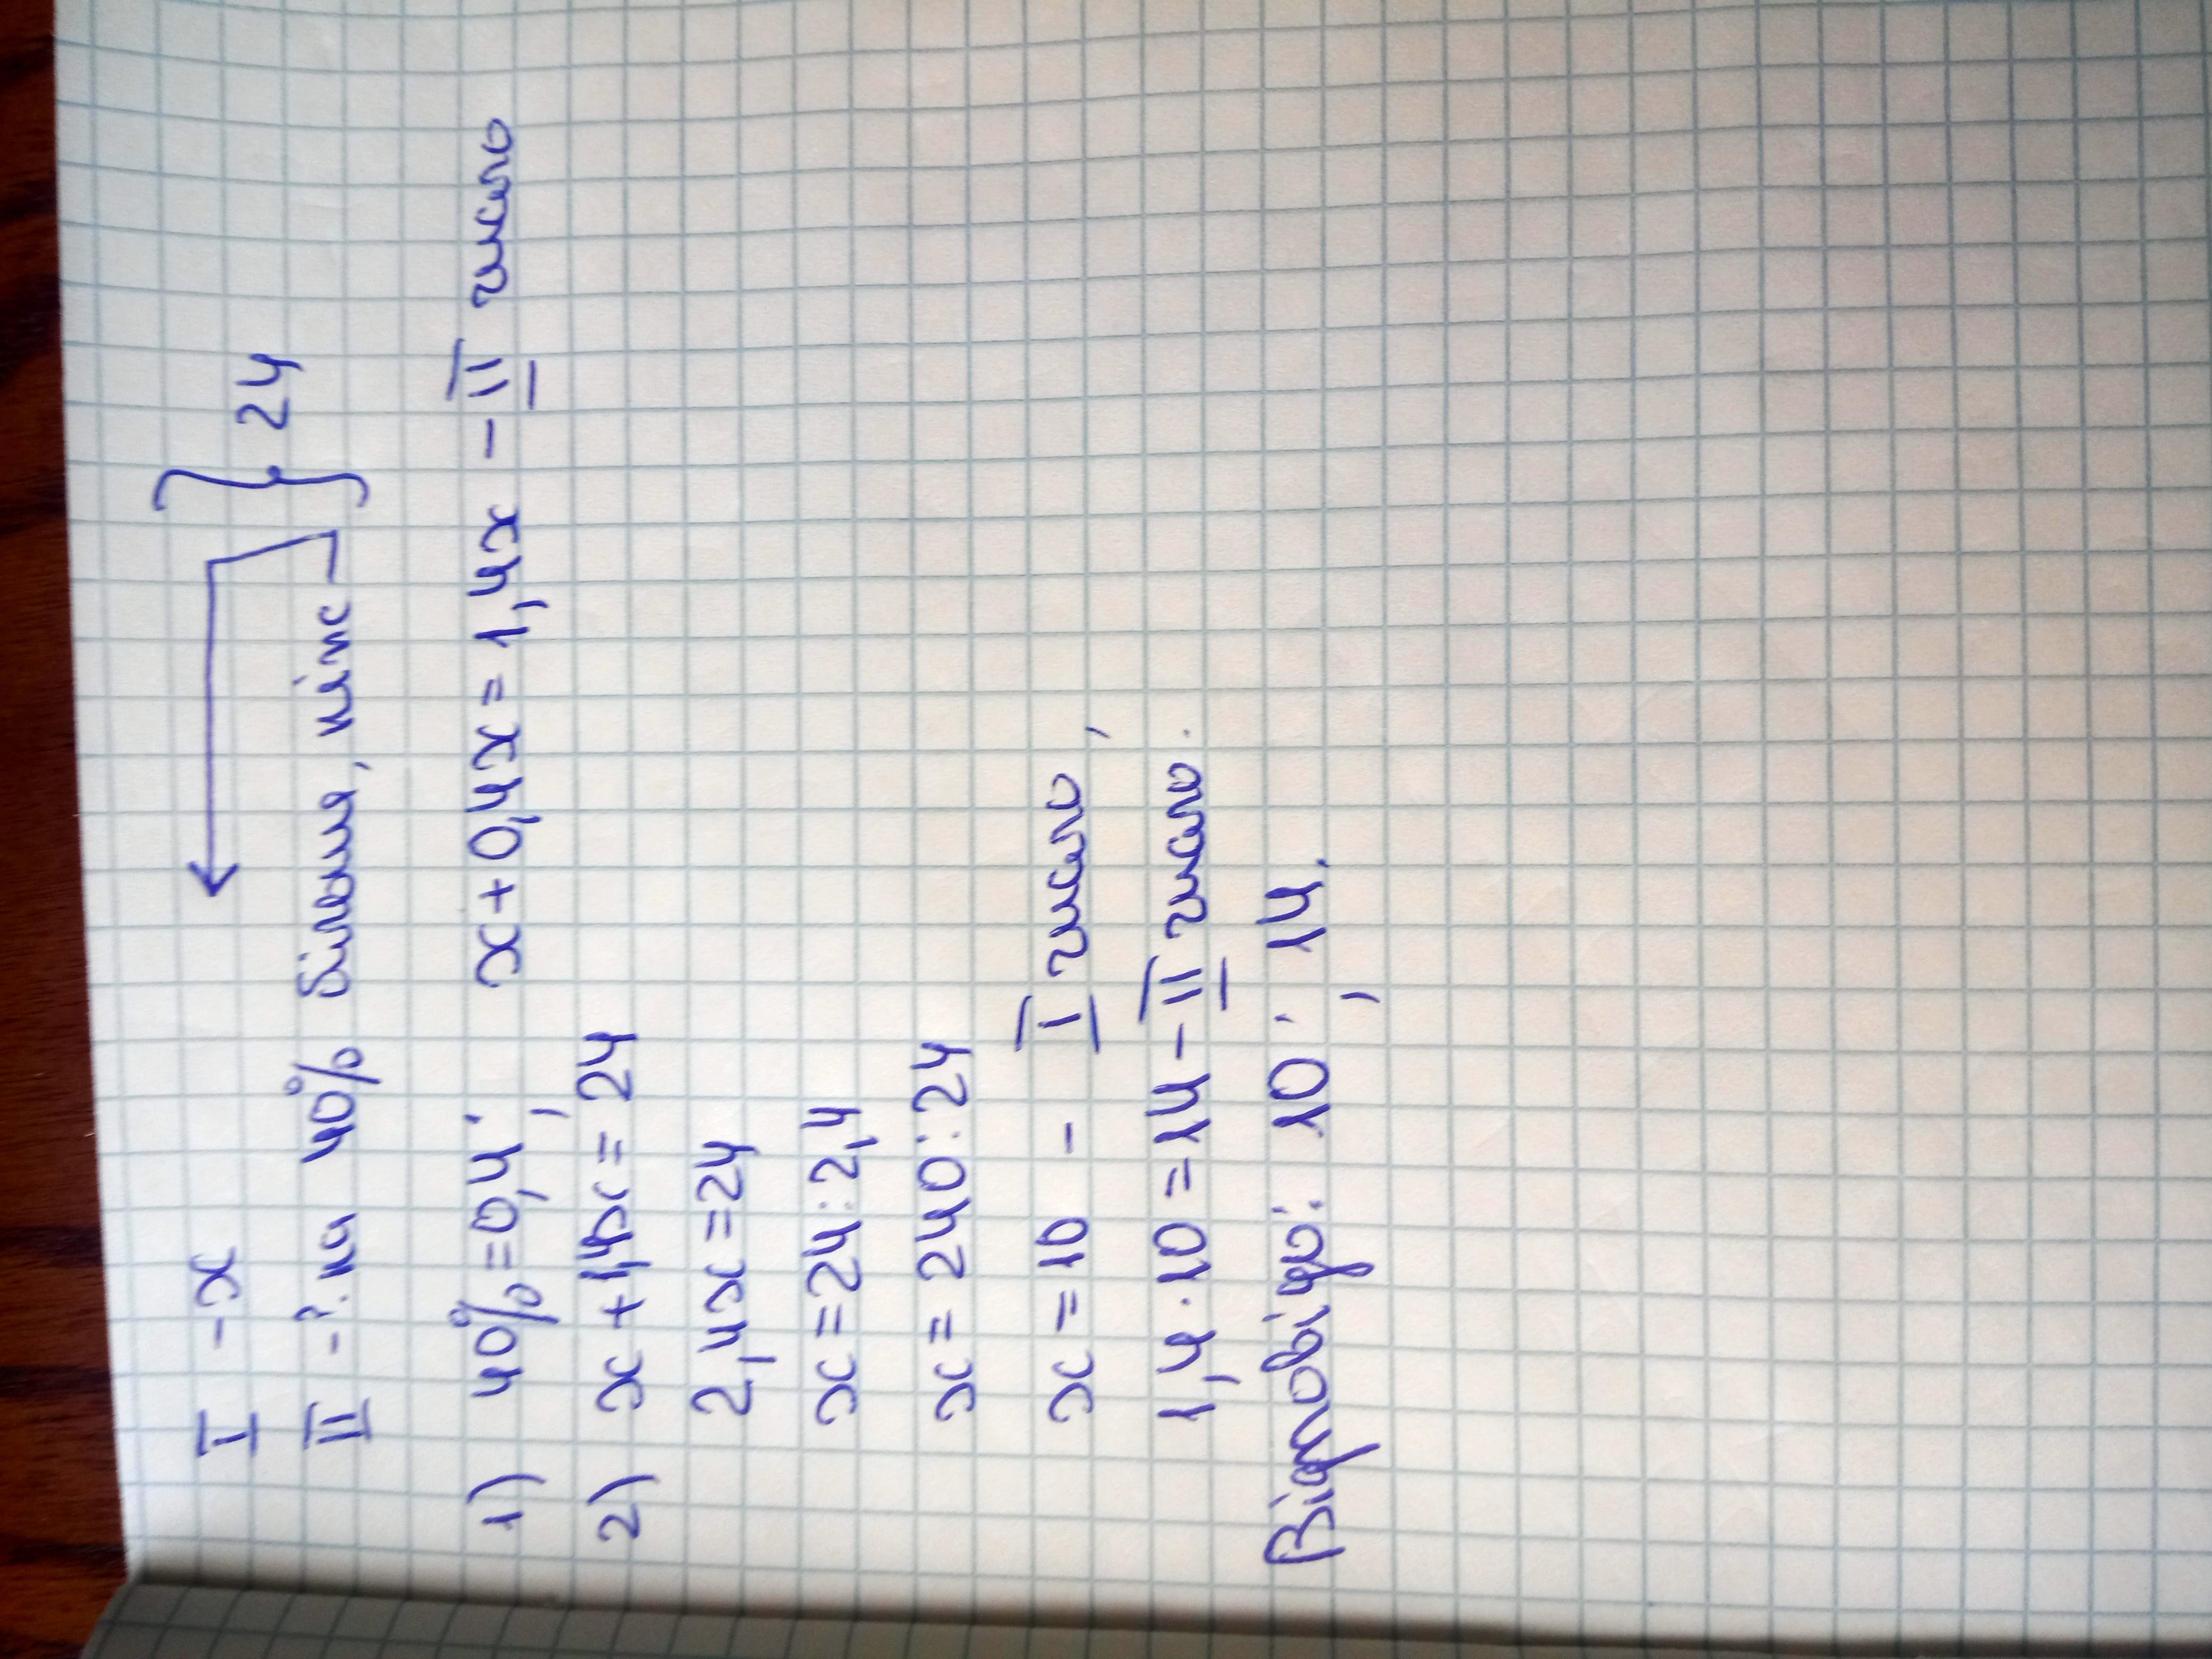 I - x
II - ? на 40% більше, ніж } 24
1) 40% = 0,4; x + 0,4x = 1,4x - II число
2) x + 1,4x = 24
2,4x = 24
x = 24 : 2,4
x = 240 : 24
x = 10 - I число;
1,4 · 10 = 14 - II число.
Відповідь: 10; 14.